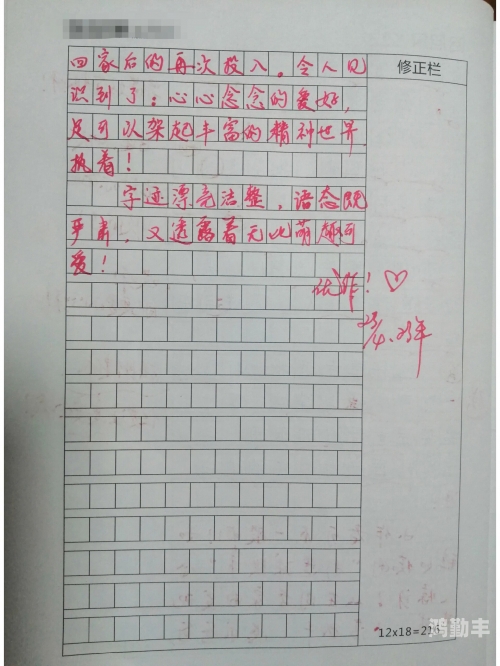 回家后的再次投入。令人见
识到了：心心念念的爱好，
足可以架起丰富的精神世界。
执着！
字迹漂亮洁整，语态既
严肃，又透露着无比萌趣可
爱！
优作！♡
23/4.23年
修正栏
12x18=216
鸿勤丰